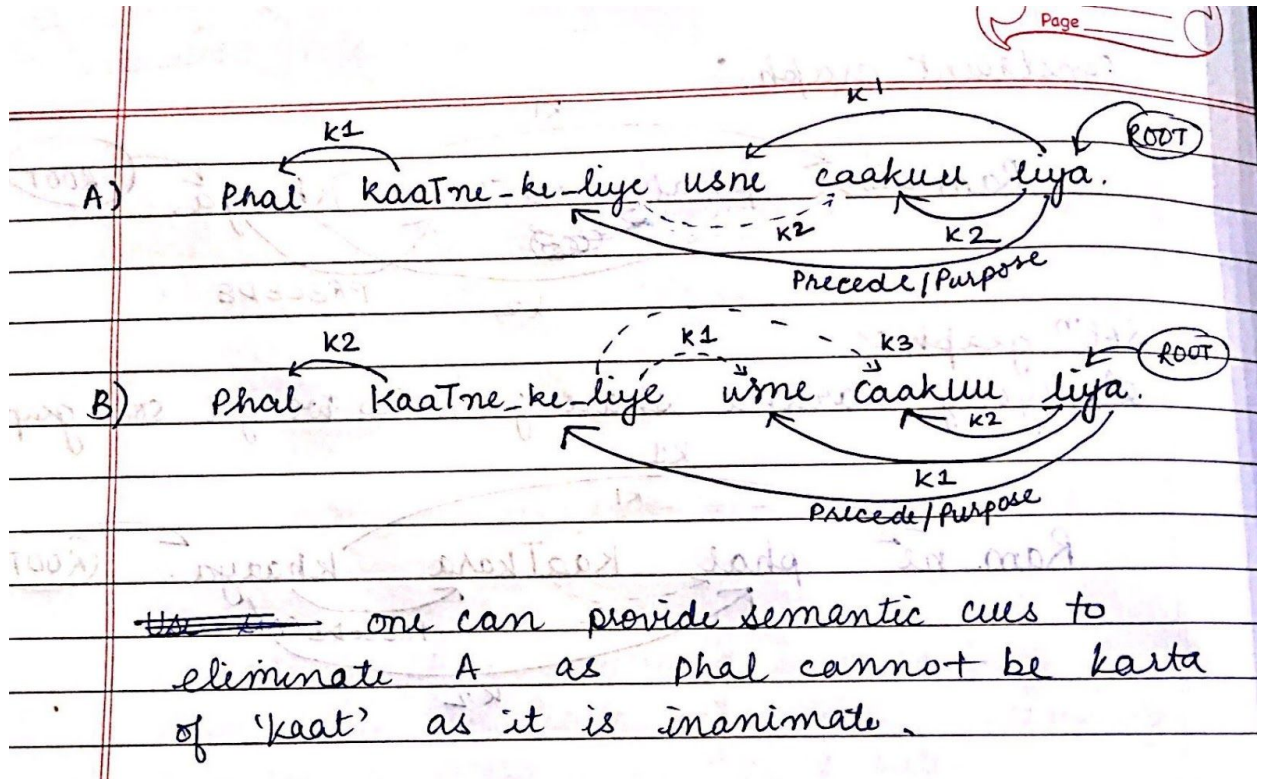 Page
K1
K1
ROOT
A) Phal kaaTne-ke-liye usne caakuu liya.
K2
K2
Precede/Purpose
K2
K1
K3
ROOT
B) Phal kaaTne-ke-liye usne caakuu liya.
K2
K1
Precede/Purpose
one can provide semantic cues to
eliminate A as phal cannot be karta
of 'kaat' as it is inanimate.
Ram ne phal kaatkara khaaya